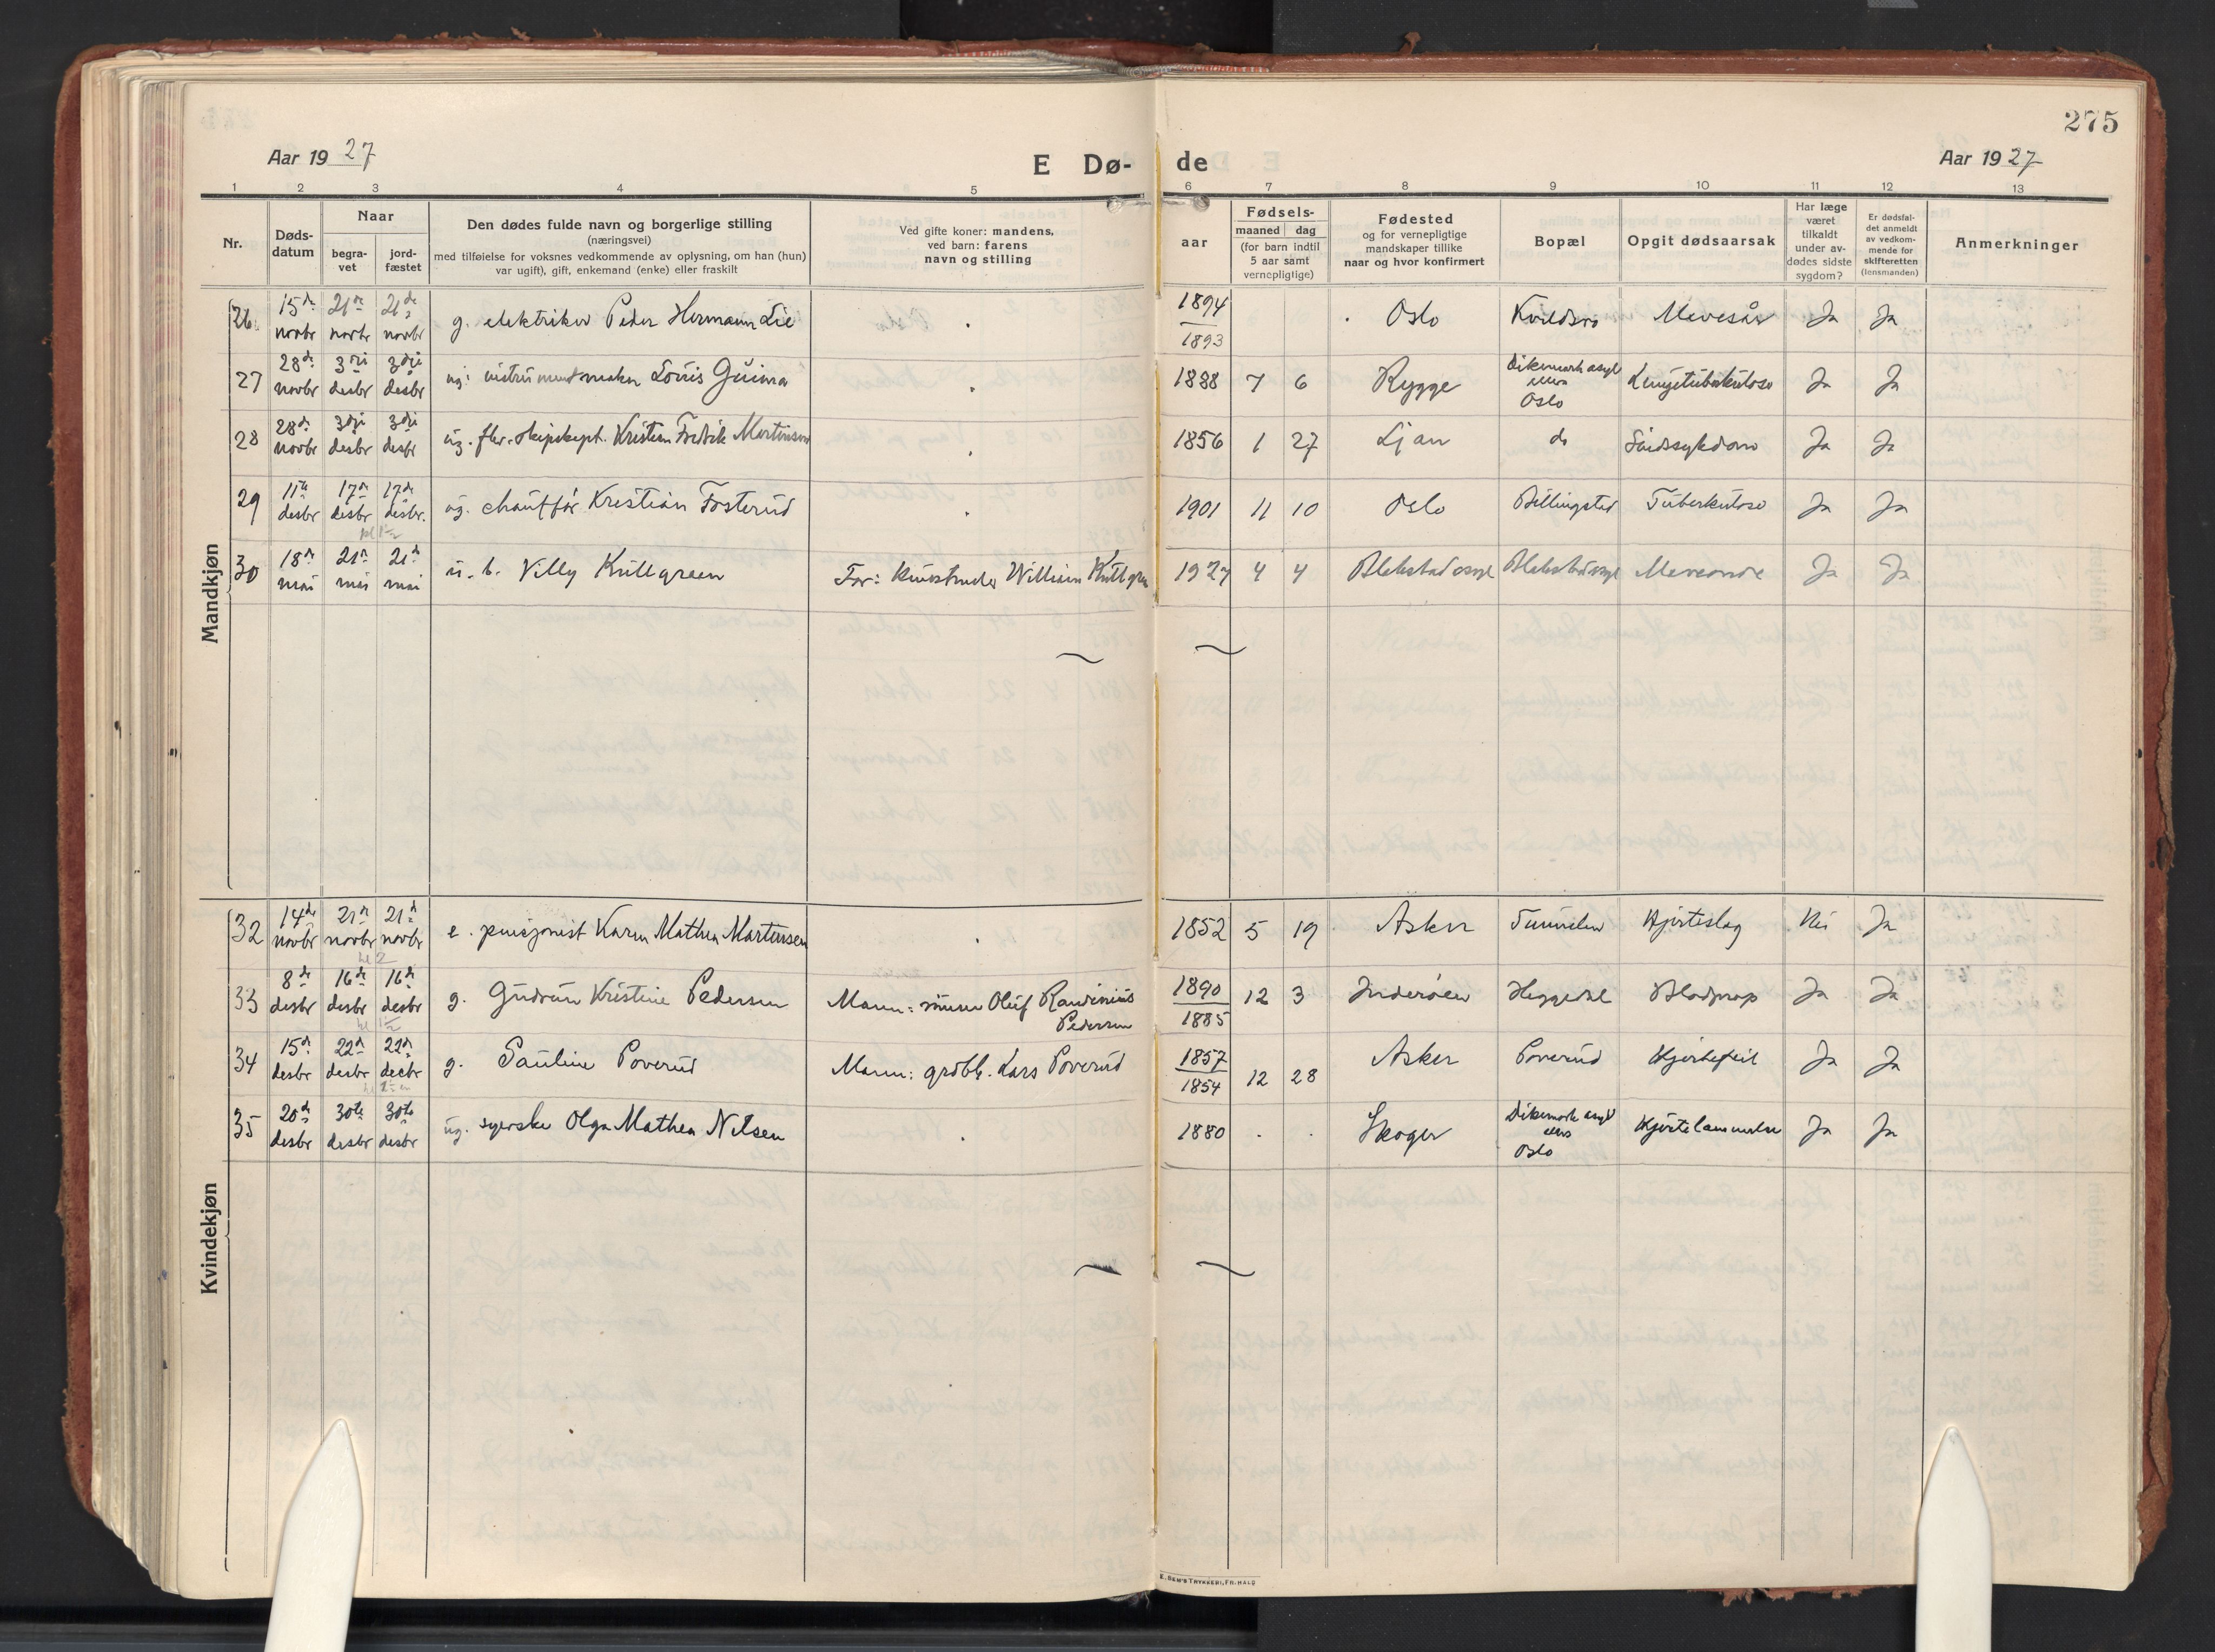 275
Aar 19 27
E Dø-
de
Aar 19 27
1 2 3 4 5 6 7 8 9 10 11 12 13
Nr.
Døds-
datum
Naar
begra-
vet
jord-
fæstet
Den dødes fulde navn og borgerlige stilling
(næringsvei)
med tilføielse for voksnes vedkommende av oplysning, om han (hun)
var ugift), gift, enkemand (enke) eller fraskilt
Ved gifte koner: mandens,
ved barn: farens
navn og stilling
aar
Fødsels-
maaned dag
(for barn indtil
5 aar samt
vernepligtige)
Fødested
og for vernepligtige
mandskaper tillike
naar og hvor konfirmert
Bopæl
Opgit dødsaarsak
Har læge
været
tilkaldt
under av-
dødes sidste
sygdom?
Er dødsfal-
det anmeldt
av vedkom-
mende for
skifteretten
(lensmanden)
Anmerkninger
Mandkjøn
26 15de novbr 21de novbr 21de novbr g. elektriker Peder Hermann Lie 1894 1893 Oslo Ja Ja
27 28de novbr 3dji desbr 3dji desbr ug. instrumentmaker Louis 1888 7 6 Rygge Dikemark asyl ellers Oslo Lungetuberkulose Ja Ja
28 28de novbr 3dji desbr 3dji desbr ug. fhv. skipskapt. Kristian Fredrik Martinsen 1856 1 27 Ljan do Sindssykdom Ja Ja
29 11te desbr 17de desbr 17de desbr. ug. chauffør Kristian Fosterud 1901 11 10 Oslo Billingstad Tuberkulose Ja Ja
30 18de mai 21de mai 21de mai u. b. Villy Kullgreen Far: William Kullgreen 1927 4 4 Blakstad asyl Blakstad asyl Ja Ja
Kvindekjøn
32 14de novbr 21de novbr 21de novbr e. pensjonist Karen Mathea Martensen 1852 5 19 Asker Hjerteslag Nei Ja
kl 2
33 8de desbr 16de desbr 16de desbr g. Gudrun Kristine Pedersen Mann: Oluf Pedersen 1890 1885 12 3 Inderøen Heggedal Blodprop Ja Ja
34 15de desbr 22de desbr 22de decbr g. Pauline Poverud Mann: grdbr. Lars Poverud 1857 1854 12 28 Asker Poverud Hjertefeil Ja Ja
35 20de desbr 30te desbr 30te desbr ug. syerske Olga Mathea Nilsen 1880 Skoger Dikemark asyl ellers Oslo Hjertelammelse Ja Ja
E. SEM'S TRYKKERI, FR.HALD